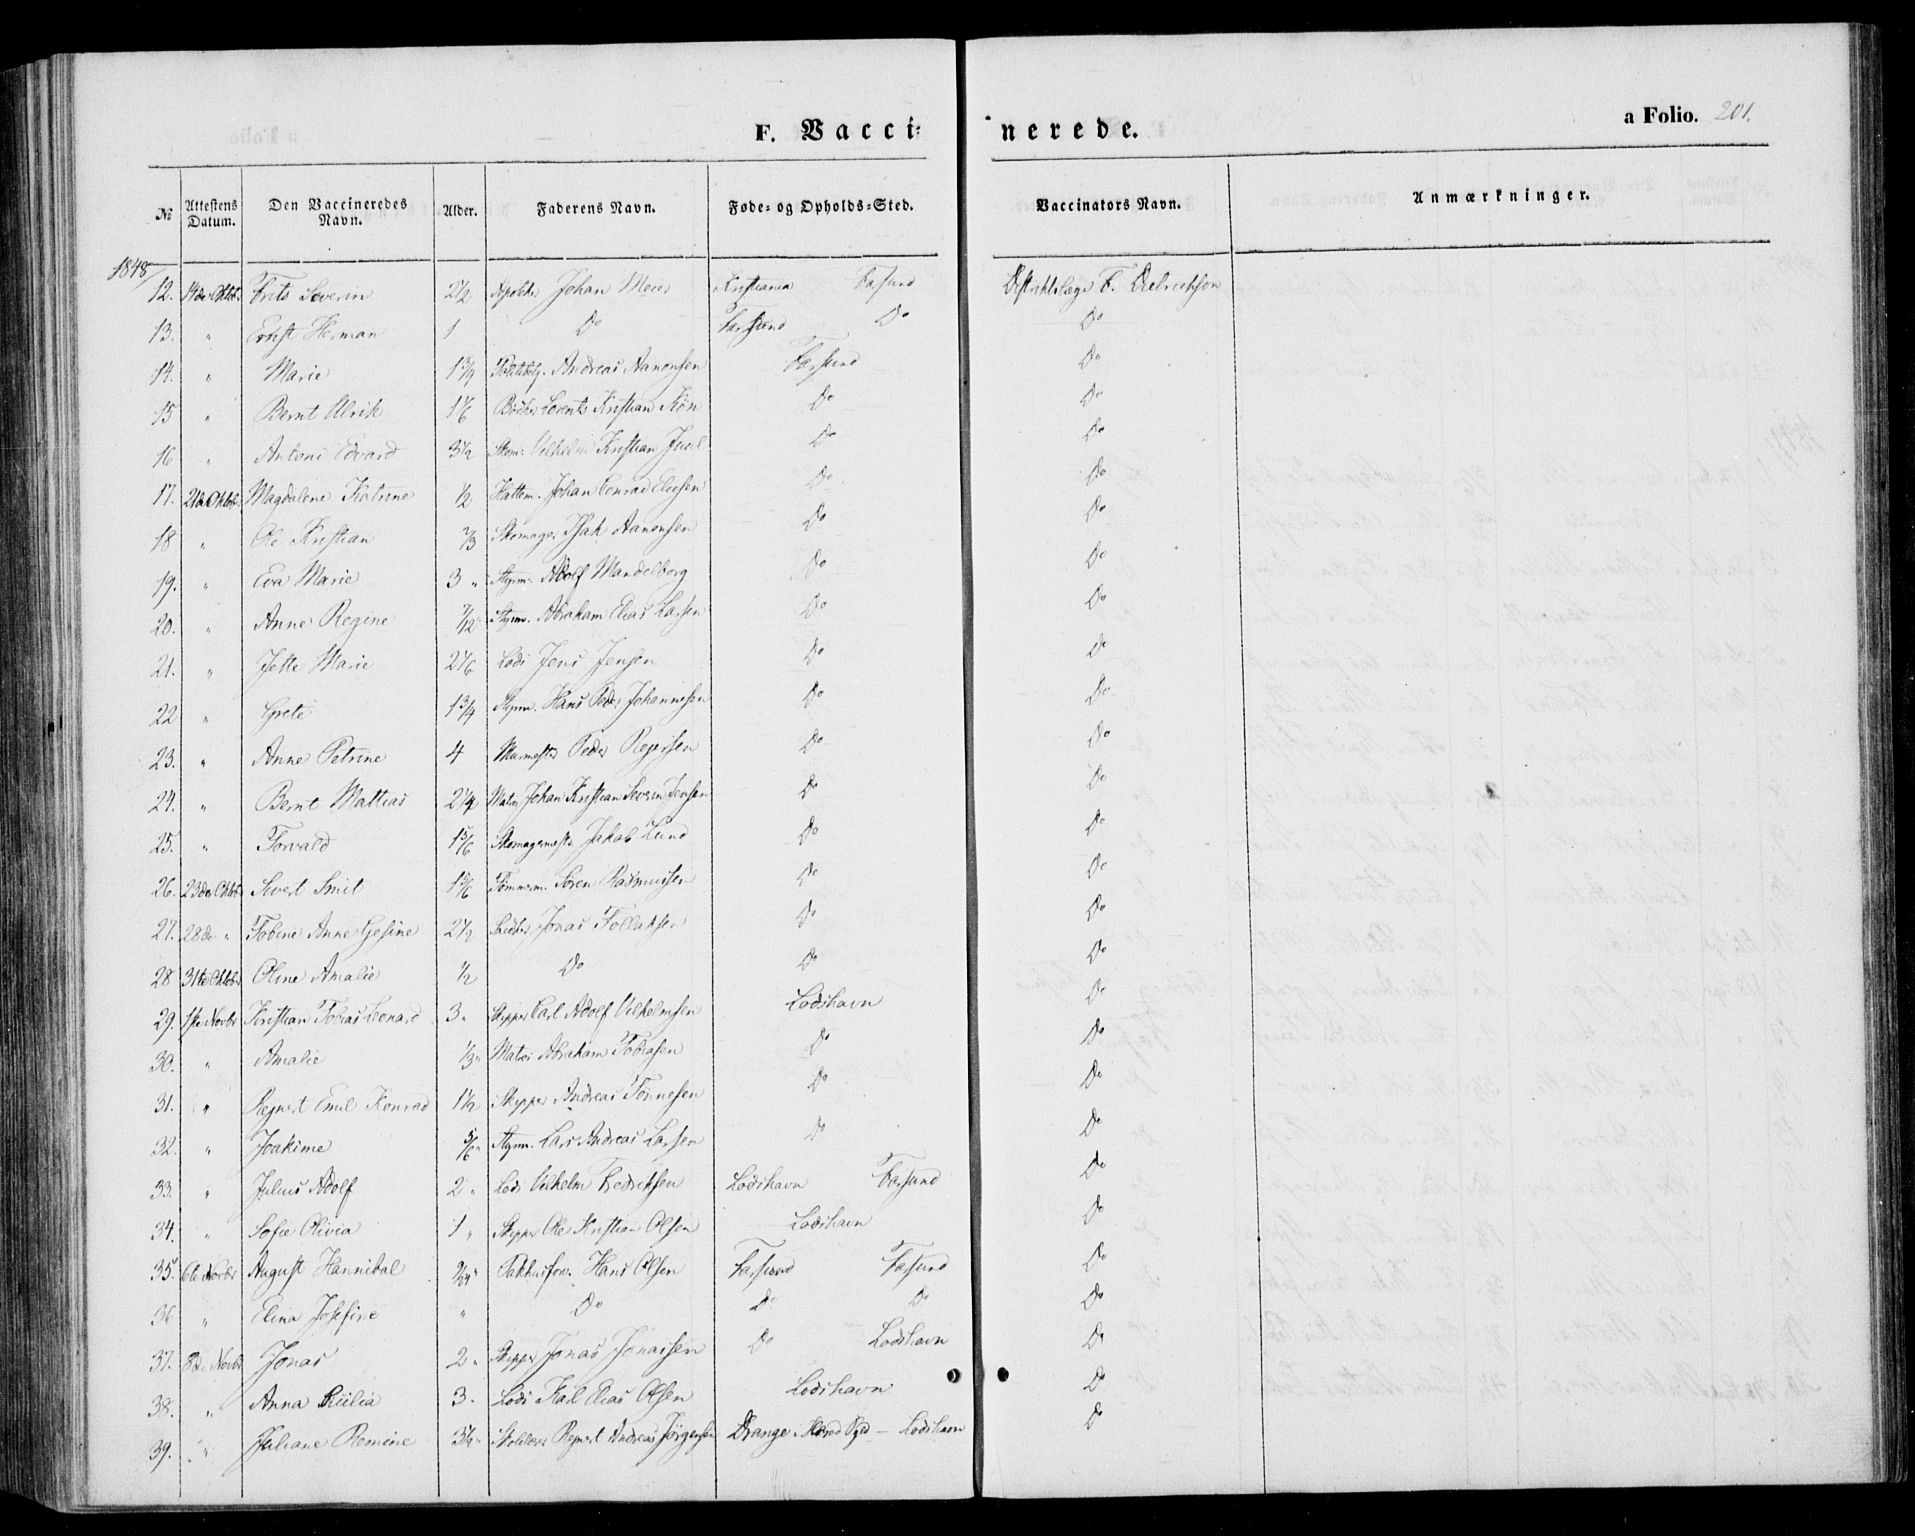 a Folio. 201.
F. Vacci= nerede.
№ Attestens Datum. Den Vaccineredes Navn. Alder. Faderens Navn. Føde= og Opholds=Sted. Vaccinators Navn. Anmærkninger.
1848
12. 14de Oktbr Frits Severin 2½ Apoteker Johan Meier Kristiania Farsund Distriktslæge F. Dietrichson
13. " Ernst Herman 1 Do Farsund Do Do
14. " Marie 1¾ Andreas Aanonsen Farsund Do
15 " Bernt Ulrik 1⅙ Kristian Do Do
16 " Antoni Edvard 3½ Skom. Vilhelm Kristian Juul Do Do
17. 21de Oktobr Magdalene Katrine ½ Hattem. Johan Conrad Do Do
18 " Ole Kristian ⅔ Skomager Isak Aanonsen Do Do
19. " Eva Marie 3 " Styrm. Adolf Mandelborg Do Do
20. " Anne Regine 7/12 Styrm. Abraham Elias Larsen Do Do
21. " Jette Marie 2⅙ Lods Jens Jensen Do Do
22 " Grete 1¾ Styrm. Hans Peder Johannesen Do Do
23. " Anne Petrine 4 Murmester Peder Do Do
24. " Bernt Mattias 2¼ Matr. Johan Kristian Severin Jensen Do Do
25. " Torvald 1⅚ Skomagermestr Jakob Lund Do Do
26. 23de Oktbr Sivert Smit 1⅚ Tømmerm. Søren Rasmussen Do Do
27. 28de " Tobine Anne Gesine 2½ Jonas Tollaksen Do Do
28 31te Oktobr Oline Amalie ½ Do Do Do
29. 1ste Novbr Kristian Tobias Leonard 3 " Skipper Carl Adolf Vilhelmsen Lodshavn Do
30. " Amalie ⅓ " Matros Abraham Tobiasen Do Do
31. " Reinert Emil Konrad 1½ Skipper Andreas Tønnesen Do Do
32. " Joakime ⅚ " Styrm. Lars Andreas Larsen Do Do
33. " Julius Adolf 2 " Lods Vilhelm Fredriksen Lodshavn Farsund Do
34. " Sofie Olivia 1 " Skipper Ole Kristian Olsen Lodshavn Do
35. 6te Novbr August Hannibal " Pakhusforv. Hans Olsen Farsund Farsund Do
36 " Elina Josefine " Do Do Do Do
37. 8de Novbr Jonas 2 " Skipper Jonas Jonassen Do Lodshavn Do
38. " Anna 3 " Lods Karl Elias Olsen Lodshavn Do
39. " Juliane Remine Skolelærer Reinert Andreas Jørgensen Drange i Herred Pgd – Lodshavn Do